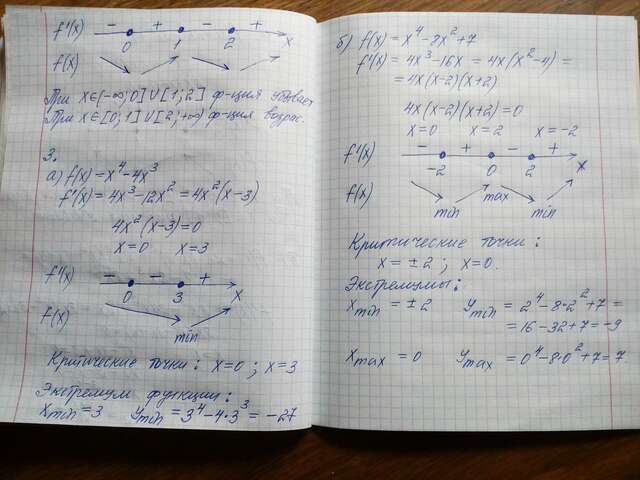 f'(x) − + − +
0 1 2 x
f(x)
При x∈(−∞;0]∪[1;2] ф-ция убывает
При x∈[0;1]∪[2;+∞) ф-ция возрас.
3.
а) f(x)=x⁴−4x³
f'(x)=4x³−12x²=4x²(x−3)
4x²(x−3)=0
x=0 x=3
f'(x) − − +
0 3 x
f(x)
min
Критические точки: x=0; x=3
Экстремум функции:
x_min=3 y_min=3⁴−4·3³=−27
б) f(x)=x⁴−8x²+7
f'(x)=4x³−16x=4x(x²−4)=
=4x(x−2)(x+2)
4x(x−2)(x+2)=0
x=0 x=2 x=−2
f'(x) − + − +
−2 0 2 x
f(x)
min max min
Критические точки:
x=±2; x=0.
Экстремумы:
x_min=±2 y_min=2⁴−8·2²+7=
=16−32+7=−9
x_max=0 y_max=0⁴−8·0²+7=7